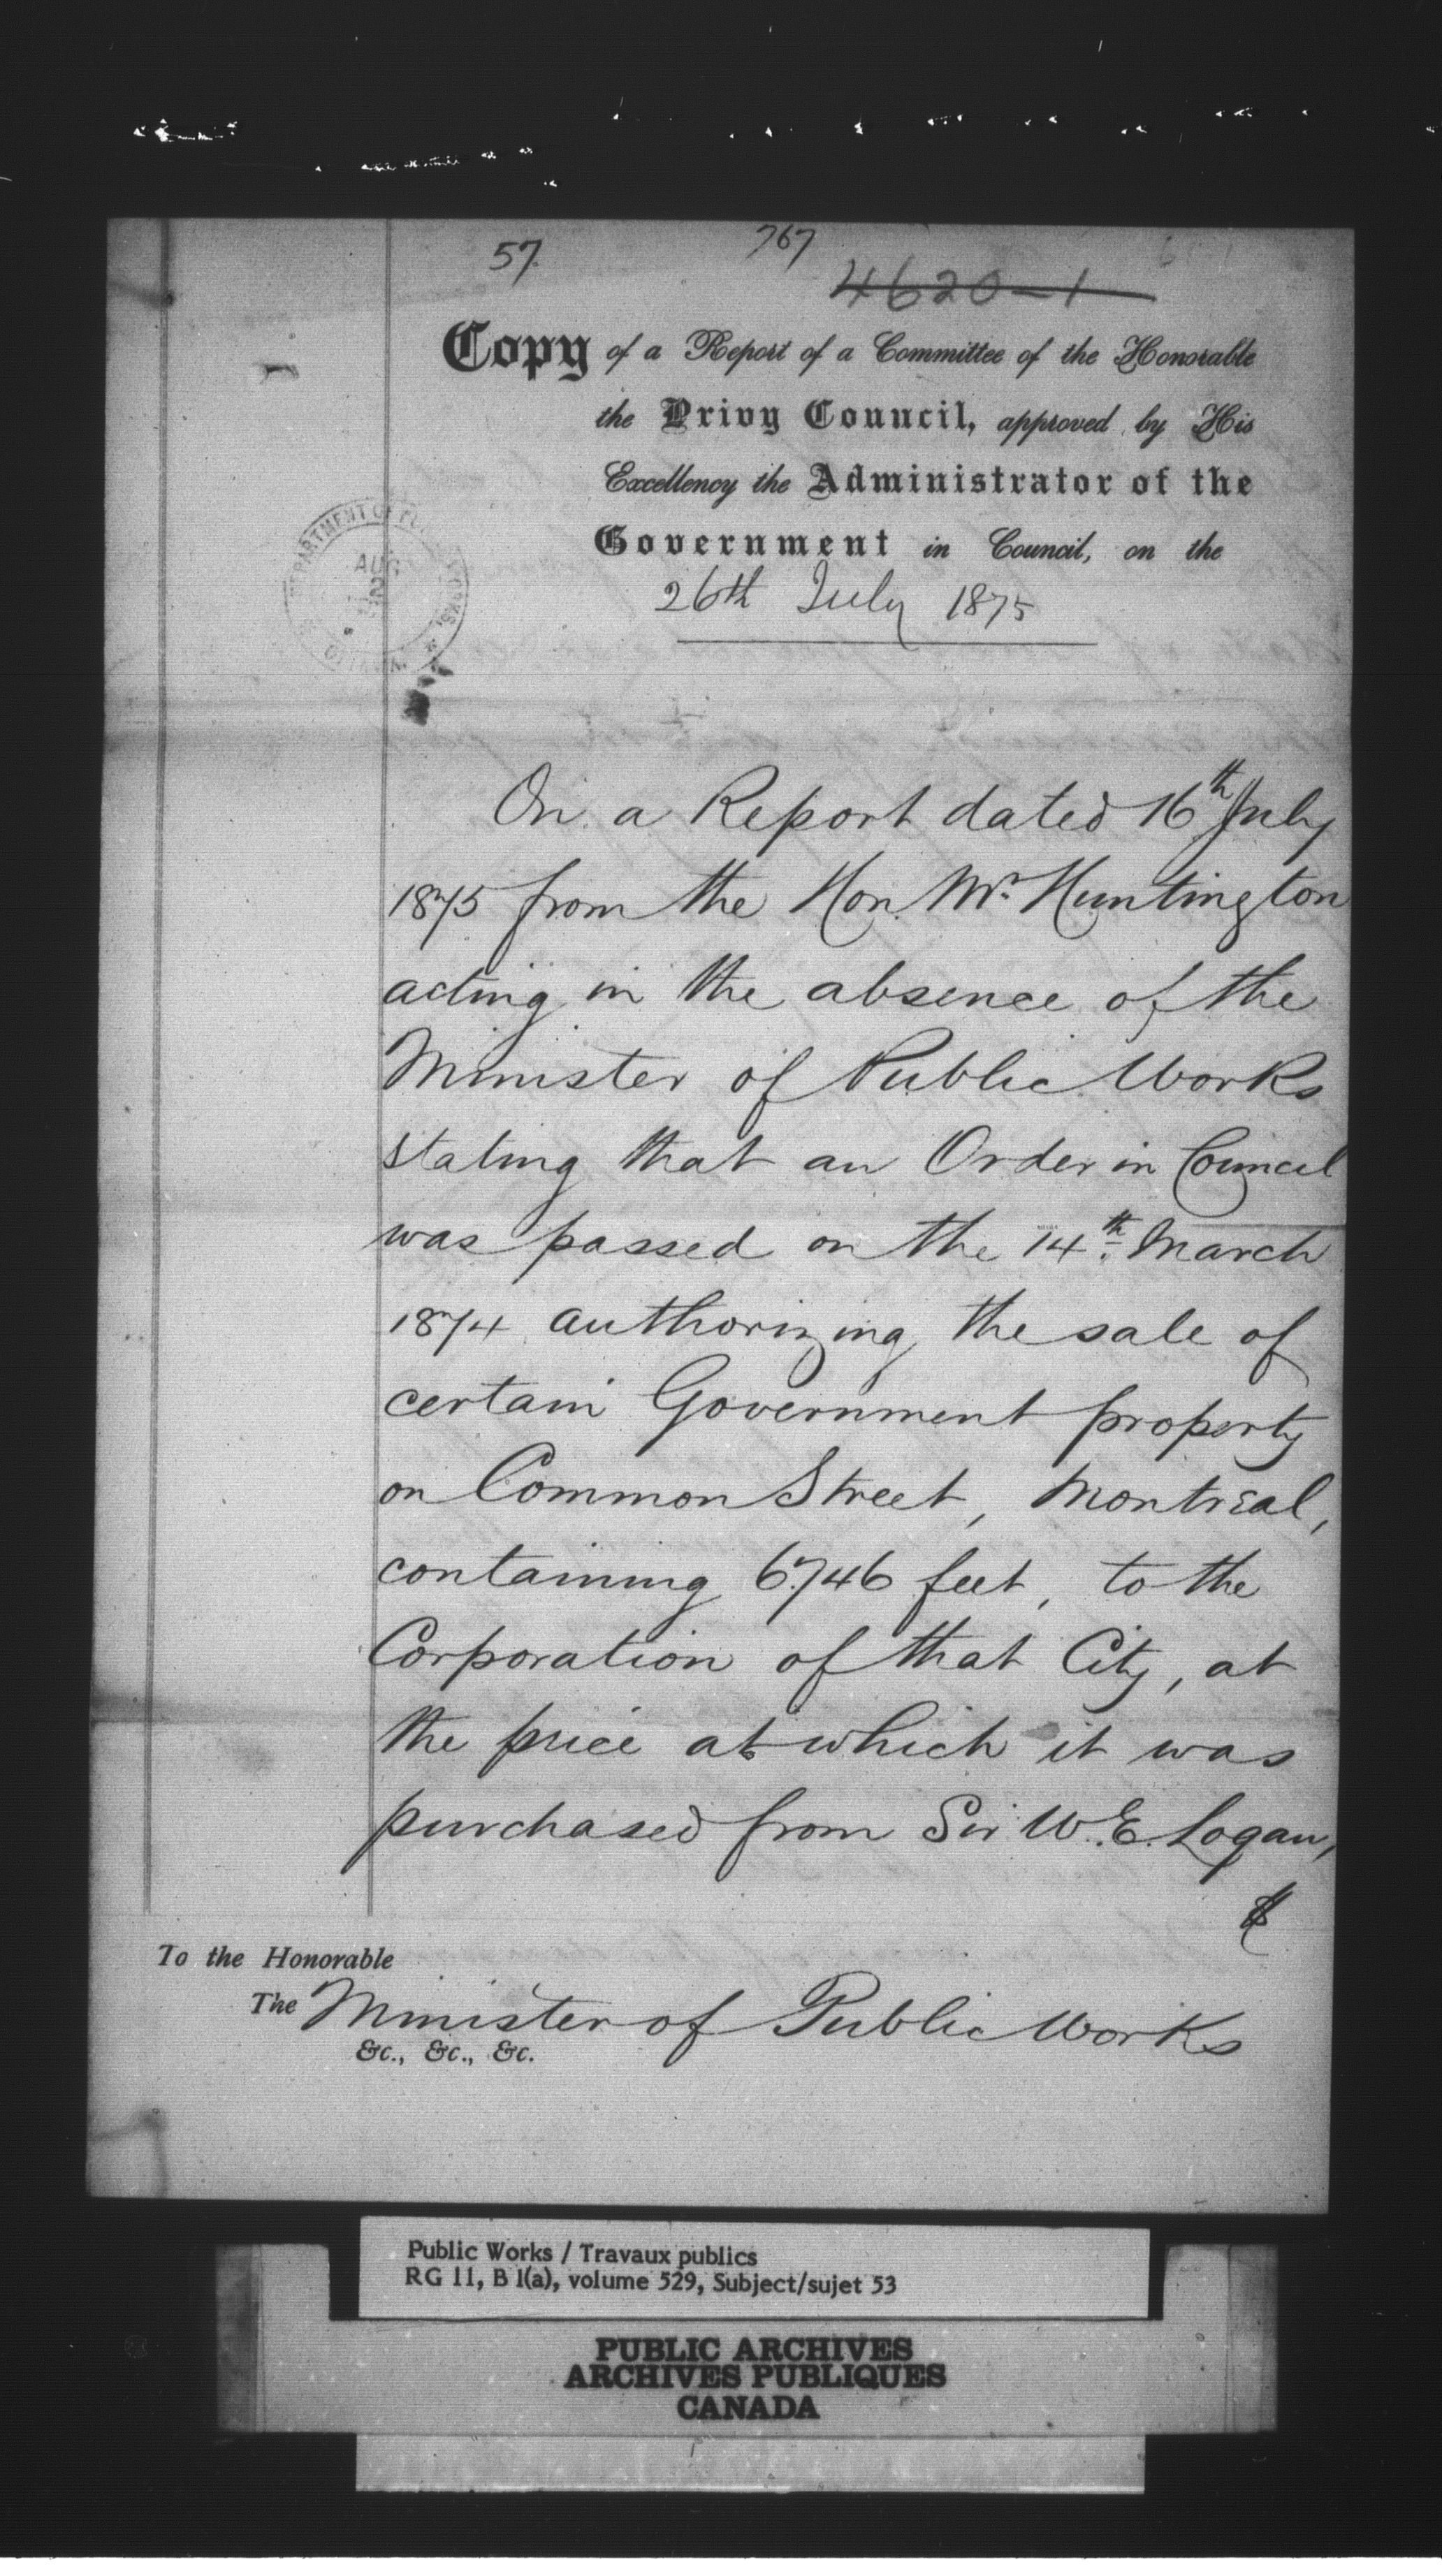 57.
767
4620-1
Copy of a Report of a Committee of the Honorable
the Privy Council, approved by His
Excellency the Administrator of the
Government in Council, on the
26th July 1875
AUG
On a Report dated 16th July
1875 from the Hon. Mr. Huntington
acting in the absence of the
Minister of Public Works
stating that an Order in Council
was passed on the 14th. March
1874 authorizing the sale of
certain Government property
on Common Street, Montreal,
containing 6746 feet, to the
Corporation of that City, at
the price at which it was
purchased from Sir W. E. Logan,
To the Honorable
The Minister of Public Works
&c., &c., &c.
Public Works / Travaux publics
RG 11, B 1(a), volume 529, Subject/sujet 53
PUBLIC ARCHIVES
ARCHIVES PUBLIQUES
CANADA